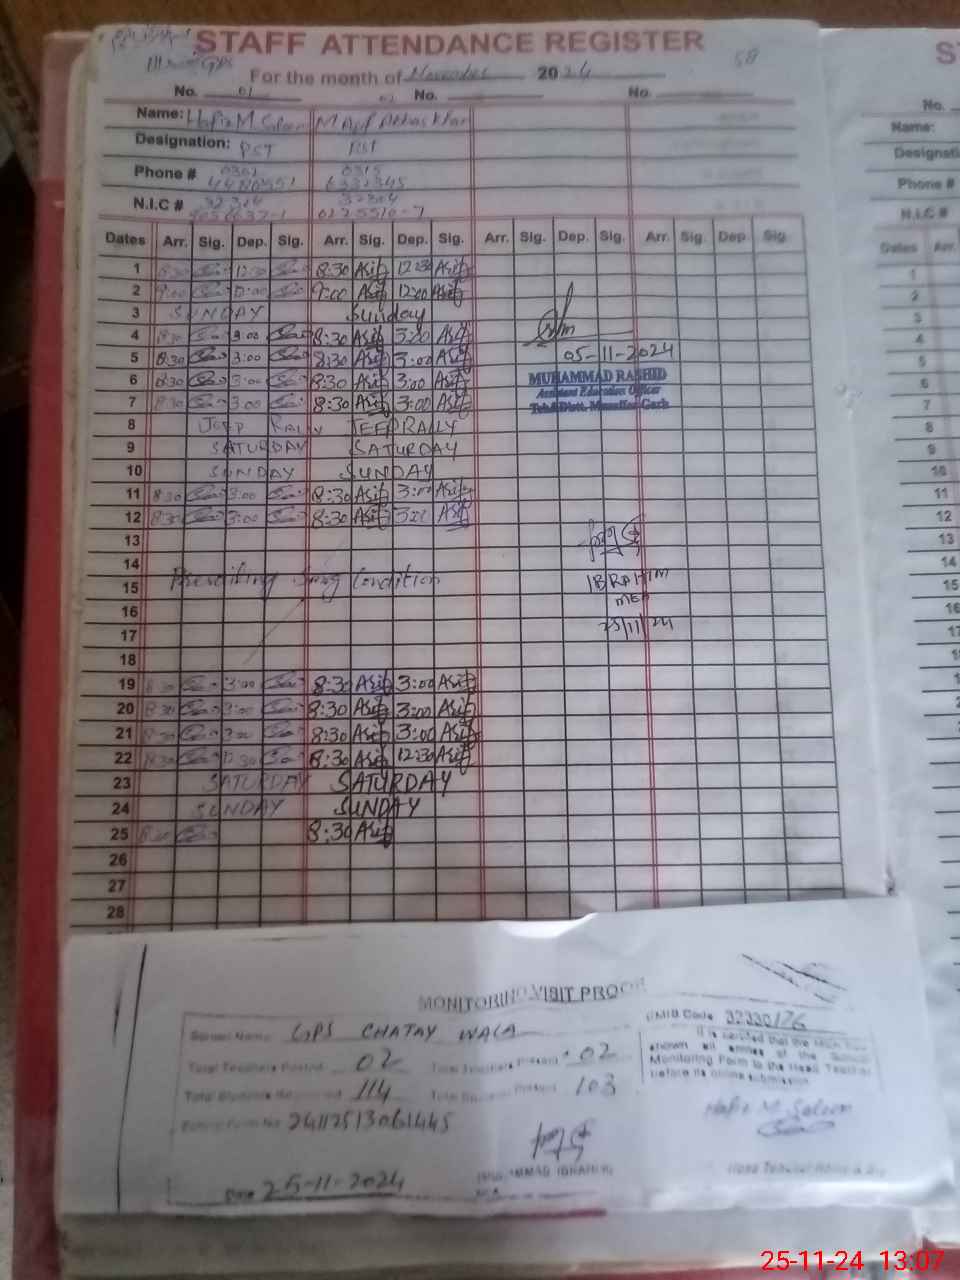 STAFF ATTENDANCE REGISTER
58
For the month of November 2024
No. 01 02 No. No.
Name: Hafiz M. Saleem M Asif Abbas Khan
Designation: PST PST
Phone # 0302 0315
6332345
N.I.C # 32304 32304
0225510-7
Dates Arr. Sig. Dep. Sig. Arr. Sig. Dep. Sig. Arr. Sig. Dep. Sig. Arr. Sig. Dep. Sig.
1 8:30 12:30 8:30 Asif 12:30 Asif
2 9:00 12:00 9:00 Asif 12:00 Asif
3 SUNDAY Sunday
4 8:30 3:00 8:30 Asif 3:00 Asif
5 8:30 3:00 8:30 Asif 3:00 Asif
05-11-2024
6 8:30 3:00 8:30 Asif 3:00 Asif
MUHAMMAD RASHID
Assistant Education Officer
7 8:30 3:00 8:30 Asif 3:00 Asif
Teh& Distt. Muzaffar Garh
8 JEEP RALLY JEEP RALLY
9 SATURDAY SATURDAY
10 SUNDAY SUNDAY
11 8:30 3:00 8:30 Asif 3:00 Asif
12 8:30 3:00 8:30 Asif 3:00 Asif
13
14
15 Smog Condition
IBRAHIM
MEA
16
17 25/11/24
18
19 8:30 3:00 8:30 Asif 3:00 Asif
20 8:30 3:00 8:30 Asif 3:00 Asif
21 8:30 3:00 8:30 Asif 3:00 Asif
22 8:30 12:30 8:30 Asif 12:30 Asif
23 SATURDAY SATURDAY
24 SUNDAY SUNDAY
25 8:30 8:30 Asif
26
27
28
MONITORING VISIT PROOF
School Name: GPS CHATAY WALA
EMIS Code 32330126
Total Teachers Posted 02 Total Teachers Present 02
It is certified that the MEA has
shown all entries of the School
Monitoring Form to the Head Teacher
before its online submission.
Total Students 114 Total Students Present 103
Hafiz M. Saleem
MUHAMMAD IBRAHIM
Date 25-11-2024
Head Teacher Name & Sig
STAFF
No.
Name:
Designation
Phone #
N.I.C #
Dates Arr.
1
2
3
4
5
6
7
8
9
10
11
12
13
14
15
16
17
25-11-24 13:07